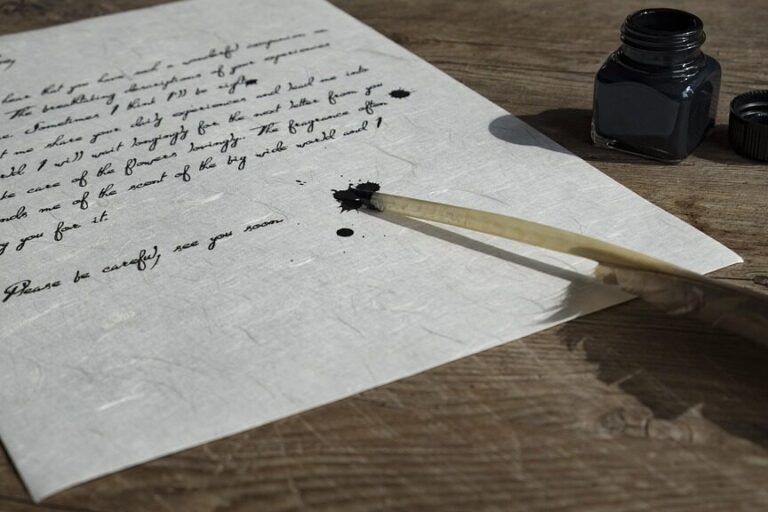 have that you have and a wonderful companion on
The breathtaking descriptions of your experiences
me. Sometimes I think I'll be right
me share your daily experiences and lead me into
I will wait longingly for the next letter from you
care of the flowers lovingly. The fragrance often
me of the scent of the big wide world and I
you for it.
Please be careful, see you soon